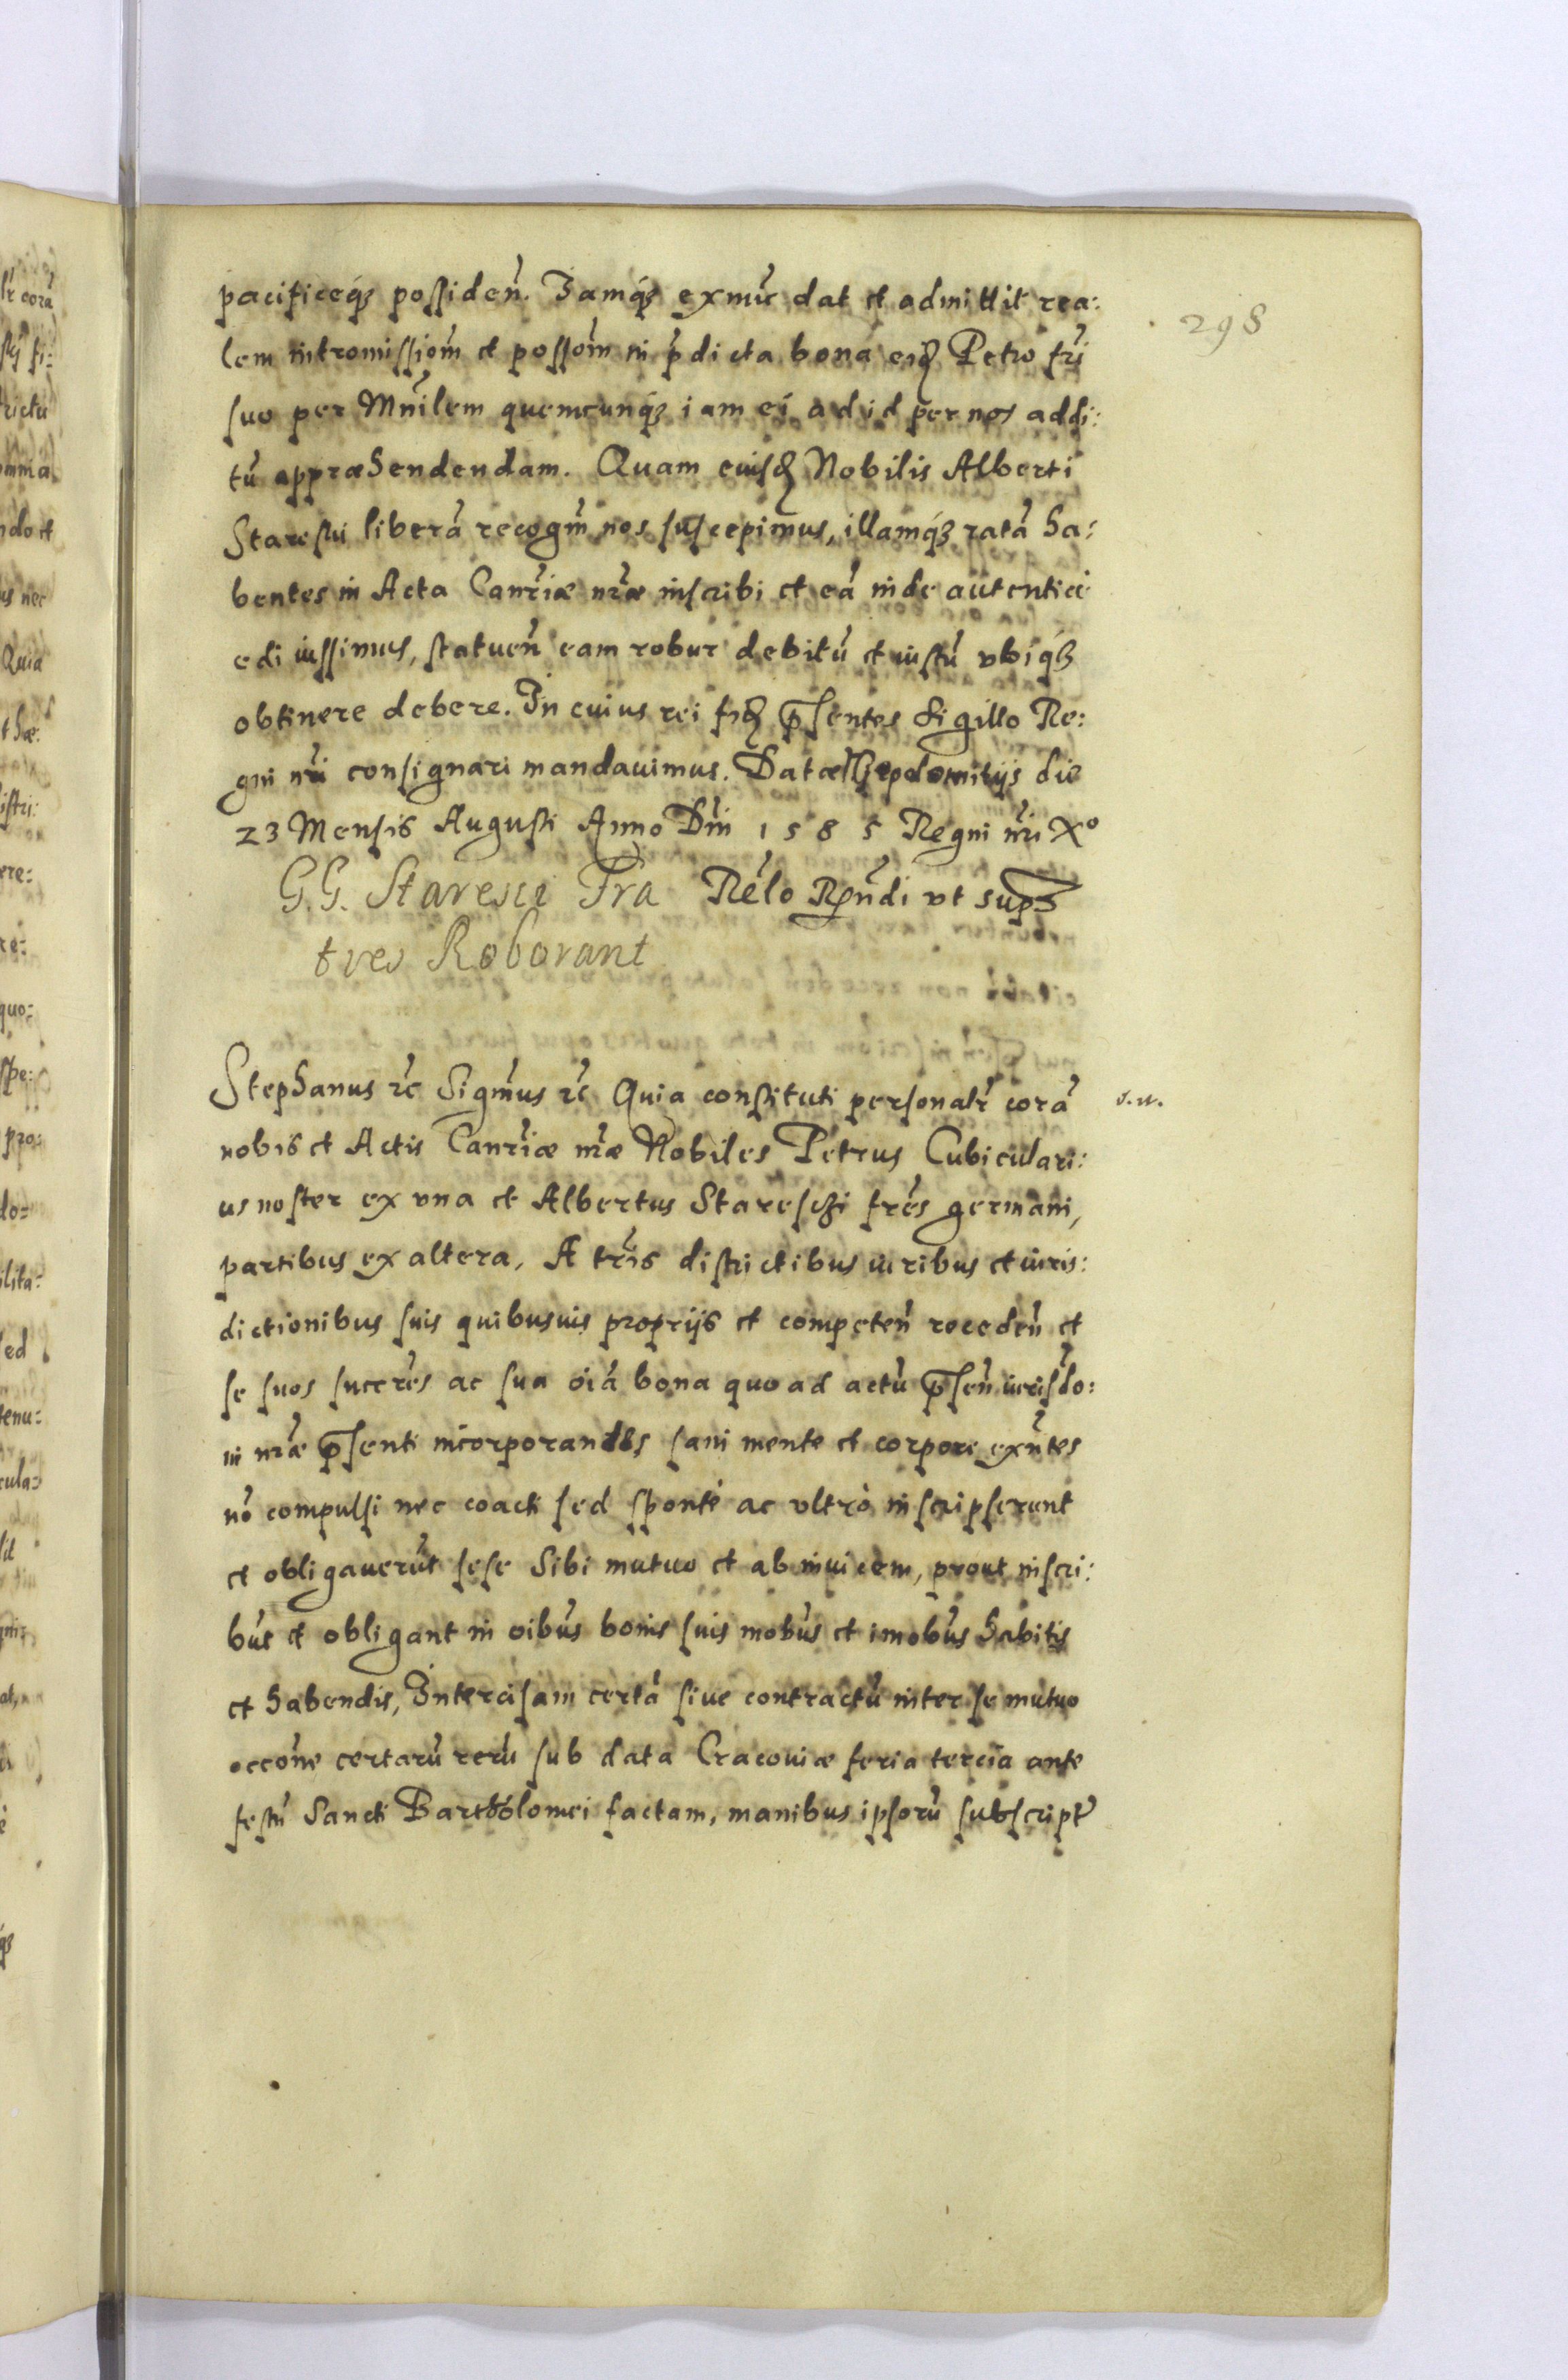 298
pacificeq3 possiden̄. Jamq3 exnūc dat et admittit rea:
lem intromissiom̄ et possom̄ in p̄dicta bona eid Petro fr̄i
suo per Mn̄ilem quemcunq3 iam ei ad id per nos addi:
tū appræhendendam. Quam eiusd Nobilis Alberti
Starescii liberā recogm̄ nos suscepimus, illamq3 ratā ha:
bentes in Acta Canr̄iæ nr̄æ inscribi et eā inde autentice
edi iussimus, statuen̄ eam robur debitū et iustū vbiq3
obtinere debere. In cuius rei fid p̄sentes Sigillo Re:
gni nr̄i consignari mandauimus. Datæ Niepolomitijs die
23 Mensis Augusti Anno Dn̄i 1585 Regni nr̄i Xº
G.G. Staresci Fra Rēlo Rn̄di vt supᵃ
tres Roborant
Stephanus rc̄ Sigm̄us rc̄ Quia constituti personalr̄ corā
nobis et Actis Canr̄iæ nr̄æ Nobiles Petrus Cubiculari:
us noster ex vna et Albertus Stareschi frēs germani,
partibus ex altera, A tr̄is districtibus iuribus et iuris:
dictionibus suis quibusuis proprijs et competen̄ receden̄ et
se suos succrēs ac sua oīa bona quo ad actū p̄sen̄ iurisdo:
ni nr̄æ p̄senti incorporandos sani mente et corpore exn̄tes
nō compulsi nec coacti sed sponte ac vltrò inscripserunt
et obligauerūt sese sibi mutuo et ab inuicem, prout inscri:
būt et obligant in oibūs bonis suis mobūs et imobūs habitis
et habendis, Intercisam certā siue contractū inter se mutuo
occōne certarū rerū sub data Cracouiæ feria tercia ante
festū Sancti Bartholomei factam, manibus ipsorū subscript